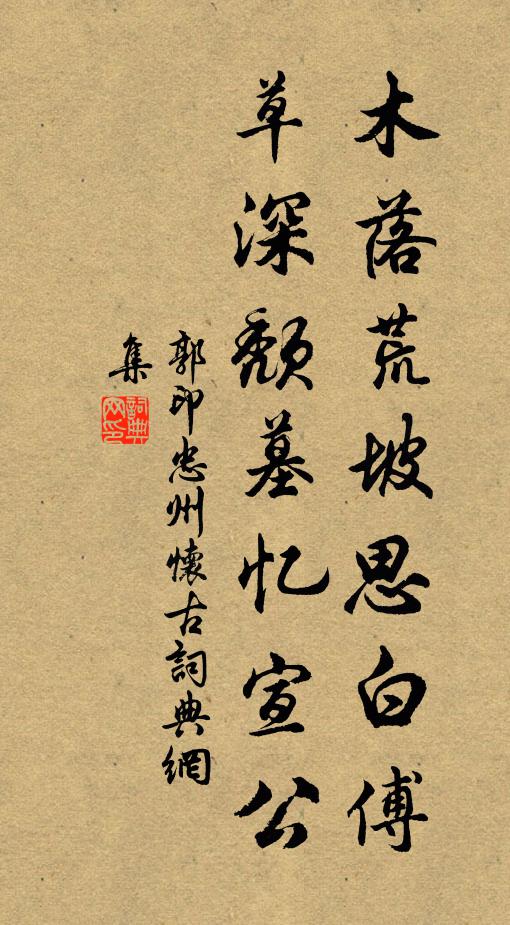 木落荒坡思白傅
草深颓墓忆宣公
郭印忠州懷古詞典網
集
詞典
网印